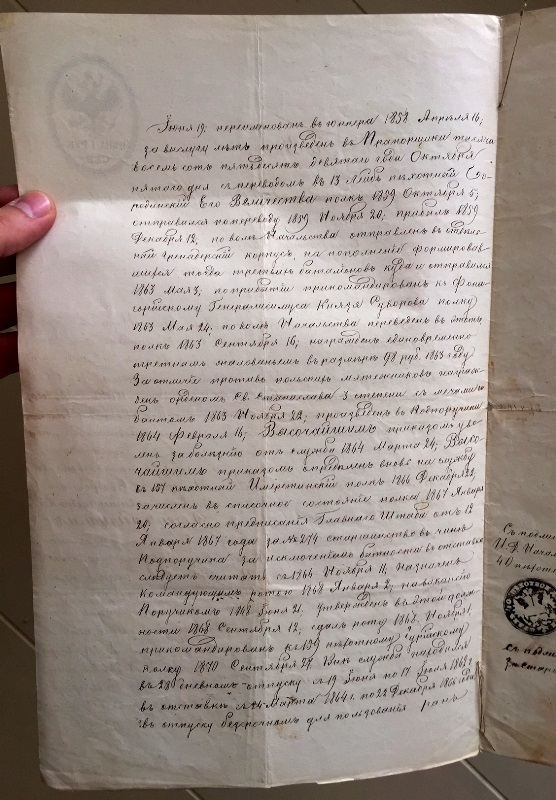 Іюня 19, переименованъ въ юнкера 1852 Апрѣля 16,
за выслугу лѣтъ произведенъ въ Прапорщики тысяча
восемьсотъ пятьдесятъ девятаго года Октября
пятаго дня съ переводомъ въ 13 Лейбъ пѣхотный Бо-
родинскій Его Величества полкъ 1859 Октября 5,
отправился по переводу 1859 Ноября 20; прибылъ 1859
Декабря 12, по волѣ Начальства отправленъ въ
Гренадерскій корпусъ, на пополненіе формировав-
шихся тогда третьихъ баталіоновъ куда и отправился
1863 Мая 3, по прибытіи прикомандированъ къ Фана-
горійскому Генералисимуса Князя Суворова полку
1863 Мая 24. по волѣ Начальства переведенъ въ этотъ
полкъ 1863 Сентября 16; награжденъ единовременно
третнымъ жалованьемъ въ размѣрѣ 98 руб. 1863 году
За отличіе противъ польскихъ мятежниковъ награж-
денъ орденомъ Св. Станислава 3 степени съ мечами и
бантомъ 1863 Ноября 22; произведенъ въ Подпоручики
1864 Февраля 16; Высочайшимъ приказомъ уво-
ленъ за болѣзнію отъ службы 1864 Марта 24; Высо-
чайшимъ приказомъ опредѣленъ вновь на службу
въ 157 пѣхотный Имеретинскій полкъ 1866 Декабря 22,
зачисленъ въ списочное состояніе полка 1867 Января
20; согласно предписанія Главнаго Штаба отъ 12
Января 1867 года за № 274 старшинство въ чинѣ
Подпоручика за исключеніемъ бытности въ отставкѣ
слѣдуетъ считать съ Ноября 11, Назначенъ
Командующимъ ротою 1868 Января 2, на вакансію
Поручикомъ 1868 21. Утвержденъ въ этой долж-
ности 1868 Сентября 12, сдалъ роту 1868, Ноября 1,
прикомандированъ къ пѣхотному
полку 1870 Сентября 27. Внѣ службы находился
въ 28 дневномъ отпуску съ 19 Іюня по 17 Іюля 1862 г.
въ отставкѣ съ 24 Марта 1864 г. по 22 Декабря 1866
въ отпуску безсрочномъ для пользованія ранъ
Съ подлин
40 пѣхотн
съ подли